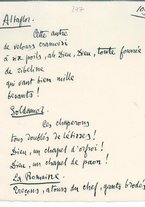 377
10
Altaflor.
Cette autre
de velours cramoisi
à six poils, ah Dieu, Dieu, toute fourrée
de zibeline
qui vaut bien mille
besants !
Soldamor.
Ces chaperons
tous doublés de létices !
Dieu, un chapel d'orfroi !
Dieu, un chapel de paon !
La Romaine.
Tressons, atours du chef, gants brodés